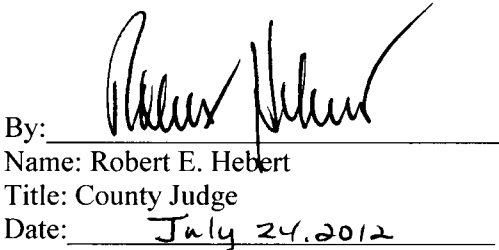 Robert Hebert
By:
Name: Robert E. Hebert
Title: County Judge
Date: July 24, 2012